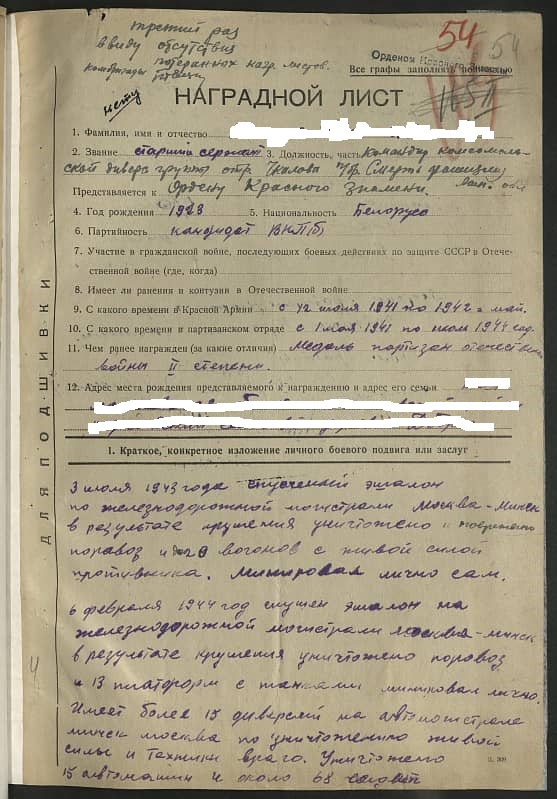 третий раз
ввиду отсутствия
потерянных нагр. листов.
54
54
Орденом Красного
Все графы заполнять полностью
НАГРАДНОЙ ЛИСТ
1. Фамилия, имя и отчество
2. Звание старший сержант 3. Должность, часть Командир комсомоль-
ской диверс группы отр. Чкалова п/бр. Смерть фашизму
Представляется к Ордену Красного Знамени.
4. Год рождения 1923 5. Национальность Белорус
6. Партийность кандидат ВКП(б)
7. Участие в гражданской войне, последующих боевых действиях по защите СССР в Отече-
ственной войне (где, когда)
8. Имеет ли ранения и контузии в Отечественной войне
9. С какого времени в Красной Армии с 12 июля 1941 по 1942 г. май.
10. С какого времени в партизанском отряде с 1 мая 1941 по июль 1944 год.
11. Чем ранее награжден (за какие отличия) Медаль партизан отечествен
войны II степени.
12. Адрес места рождения представляемого к награждению и адрес его семьи
ДЛЯ ПОДШИВКИ
1. Краткое, конкретное изложение личного боевого подвига или заслуг
3 июля 1943 года спущенный эшалон
по железнодорожной магистрали Москва-Минск
в результате крушения уничтожено и повреждено
паравоз и 28 вогонов с живой силой
противника. Минировал лично сам.
6 февраля 1944 год спущен эшалон на
железнодорожной магистрали Москва-минск
в результате крушения уничтожено паровоз
и 13 платформ с танками минировал лично.
Имеет более 15 диверсий на автомагистрале
минск москва по уничтожению живой
силы и техники врага. Уничтожено
15 автомашин и около 68 солдат
4